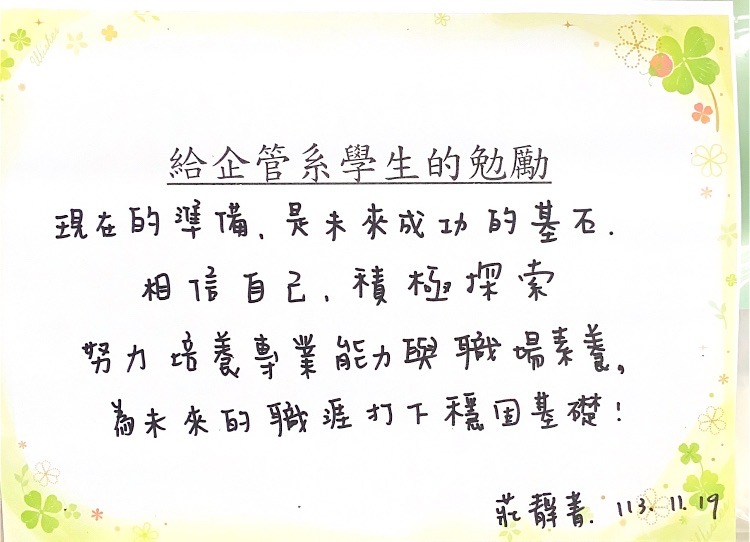 Wishes
給企管系學生的勉勵
現在的準備、是未來成功的基石.
相信自己、積極探索
努力培養專業能力與職場素養,
為未來的職涯打下穩固基礎!
莊靜青. 113.11.19